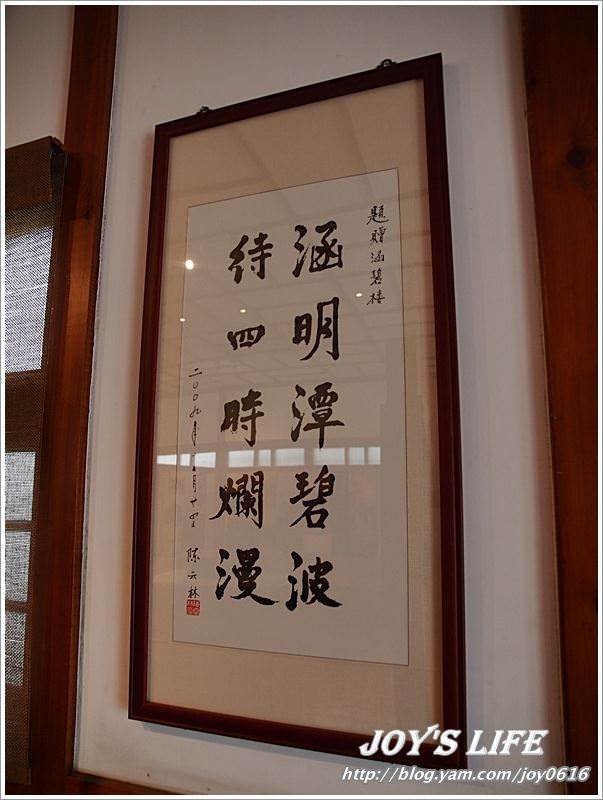 題贈涵碧樓
涵明潭碧波
待四時爛漫
二〇〇九年十二月十四 陳云林
JOY'S LIFE
http://blog.yam.com/joy0616